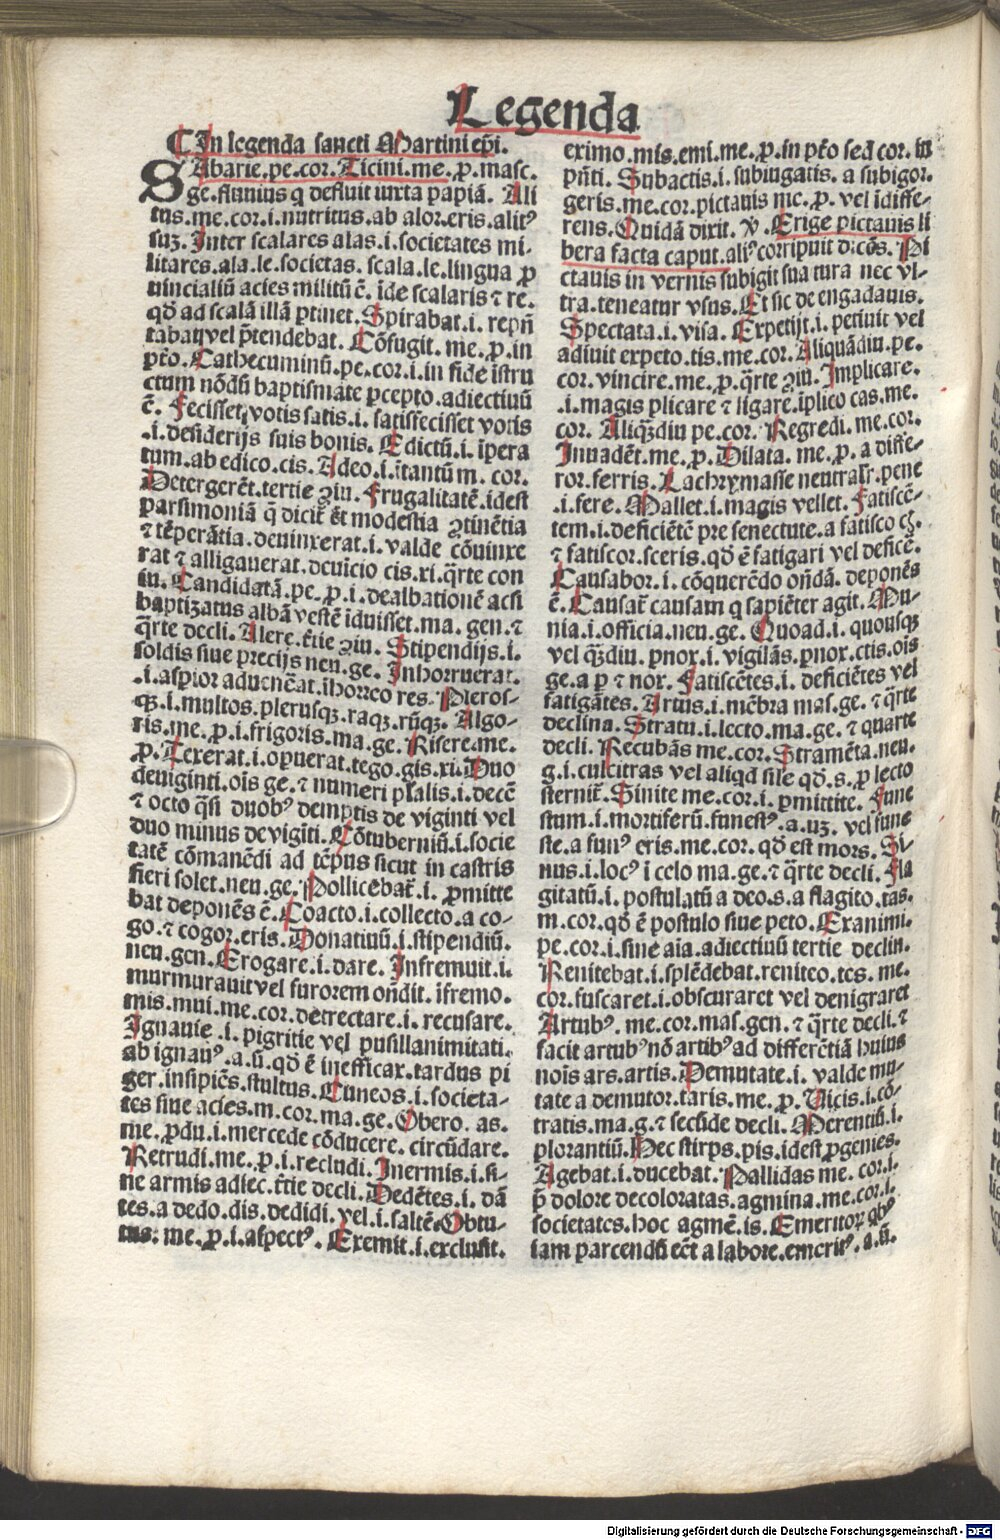 Legenda
¶ In legenda sancti Martini ep̃i.
SAbarie.pe.cor.Ticini.me.p̱.masc.
ge.fluuius q defluit iuxta papiã. Ali
tus.me.cor.i.nutritus.ab alor.eris.alitꝰ
suꝫ. Inter scalares alas.i.societates mi-
litares.ala.le.societas. scala.le.lingua p̱
uincialiũ acies militũ ẽ. ĩde scalaris ⁊ re.
qđ ad scalã illã ꝑtinet. Spirabat.i. repñ
tabat vel p̃tendebat. Cõfugit. me.p̱.in
p̃to. Cathecuminũ.pe.cor.i.in fide ĩstru
ctum nõdũ baptismate ꝑcepto.adiectiuũ
ẽ. Fecisset votis satis.i.satisfecisset votis
.i.desiderijs suis bonis. Edictũ.i.ĩpera
tum.ab edico.cis. Adeo.i.ĩtantũ m. cor.
Detergerẽt.tertie ꝯiu. Frugalitatẽ.idest
parsimoniã q̃ dicit᷑ ẽt modestia ꝯtinẽtia
⁊ tẽperãtia.deuinxerat.i.valde cõuinxe
rat ⁊ alligauerat.deuicio cis.xi.q̃rte con
iu. Candidatã.pe.p̱.i.dealbationẽ acsi
baptizatus albã vestẽ ĩduisset.ma.gen.⁊
q̃rte decli. Alere.t̃tie ꝯiu. Stipendijs.i.
soldis siue precijs neu.ge. Inhorruerat.
.i.aspior aduenẽat.ĩhorreo res. Pleros-
qꝫ.i.multos.plerusqꝫ.raqꝫ.rũqꝫ. Algo-
ris.me.p̱.i.frigoris.ma.ge. Risere.me.
p̱. Texerat.i.opuerat.tego.gis.xi. Duo
deuiginti.ois geꝰ ⁊ numeri pl̃alis.i.decẽ
⁊ octo q̃si duobꝰ demptis de viginti vel
duo minus de vigĩti. Cõtuberniũ.i.socie
tatẽ cõmanẽdi ad tẽpus sicut in castris
fieri solet.neu.ge. Pollicebat᷑.i. ꝓmitte
bat deponẽs ẽ. Coacto.i.collecto.a co-
go.⁊ cogor.eris. Donatiuũ.i.stipendiũ.
neu.gen. Erogare.i.dare. Infremuit.i.
murmurauit vel furorem oñdit.ĩfremo.
mis.mui.me.cor.detrectare.i. recusare.
Ignauie.i.pigritie vel pusillanimitati.
ab ignauꝰ.a.ũ.qđ ẽ inefficax.tardus pi
ger.insipiẽs.stultus. Cuneos.i.societa-
tes siue acies.m.cor.ma.ge. Obero. as.
me.p̱du.i.mercede cõducere. circũdare.
Retrudi.me.p̱.i.recludi. Inermis.i.si-
ne armis adiec.t̃tie decli. Dedẽtes.i. dã
tes.a dedo.dis.dedidi.vel.i.saltẽ. Obtu-
tus. me.p̱.i.aspectꝰ. Exemit.i.exclusit.
eximo.mis.emi.me.p̱.in p̃to sed cor. in
pñti. Subactis.i.subiugatis. a subigor.
geris.me.cor.pictauis me.p̱. vel ĩdiffe-
rens. Quidã dixit. v̾. Erige pictauis li
bera facta caput.aliꝰ corripuit dicẽs. Pi
ctauis in vernis subigit sua rura nec vl-
tra.teneatur vsus. Et sic de engadauis.
Spectata.i.visa. Expetijt.i.petiuit vel
adiuit expeto.tis.me.cor. Aliquãdiu.pe.
cor.vincire.me.p̱.q̃rte ꝯiu. Implicare.
.i.magis plicare ⁊ ligare.ĩplico cas.me.
cor. Aliqꝫdiu pe.cor. Regredi.me.cor.
Inuadẽt.me.p̱. Dilata. me.p̱. a diffe-
ror.ferris. Lachrymasse neutralr̃.pene
.i.fere. Mallet.i.magis vellet. Fatiscẽ-
tem.i.deficiẽtẽ pre senectute.a fatisco cis.
⁊ fatiscor.sceris.qđ ẽ fatigari vel deficẽ.
Causabor.i. cõquerẽdo oñdã. deponẽs
ẽ. Causat᷑ causam q sapiẽter agit. Mu-
nia.i.officia.neu.ge. Quoad.i. quousqꝫ
vel qꝫdiu. ꝑnox.i.vigilãs.ꝑnox.ctis.ois
ge.a ꝑ ⁊ nox. Fatiscẽtes.i. deficiẽtes vel
fatigãtes. Artus.i.mẽbra mas.ge. ⁊ q̃rte
declina. Stratu.i.lecto.ma.ge.⁊ quarte
decli. Recubãs me.cor. Stramẽta.neu.
g.i.culcitras vel aliqđ sile qđ.s.p̱ lecto
sternit᷑. Sinite me.cor.i. ꝑmittite. Fune
stum.i.mortiferũ.funestꝰ.a.uꝫ. vel fune
ste.a funꝰ eris.me.cor. qđ est mors. Si-
nus.i.locꝰ ĩ celo ma.ge.⁊ q̃rte decli. Fla
gitatũ.i.postulatũ a deo.s.a flagito.tas.
m.cor.qđ ẽ postulo siue peto. Exanimi.
pe.cor.i.sine aĩa.adiectiuũ tertie declin.
Renitebat.i.splẽdebat.reniteo.tes. me.
cor.fuscaret.i.obscuraret vel denigraret
Artubꝰ. me.cor.mas.gen.⁊ q̃rte decli.⁊
facit artubꝰ nõ artibꝰ ad differẽtiã huius
nois ars.artis. Demutate.i. valde mu-
tate a demutor.taris.me.p̱. Vicis.i.cõ-
tratis.ma.g.⁊ secũde decli. Merentiũ.i.
plorantiũ. Hec stirps.pis.idest ꝓgenies.
Agebat.i.ducebat. Pallidas me.cor.i.
p̃ dolore decoloratas.agmina.me.cor.i.
societates.hoc agmẽ.is. Emeritoꝝ qbꝰ
iam parcendũ eẽt a labore.emeritꝰ.a.ũ.
Digitalisierung gefördert durch die Deutsche Forschungsgemeinschaft - DFG